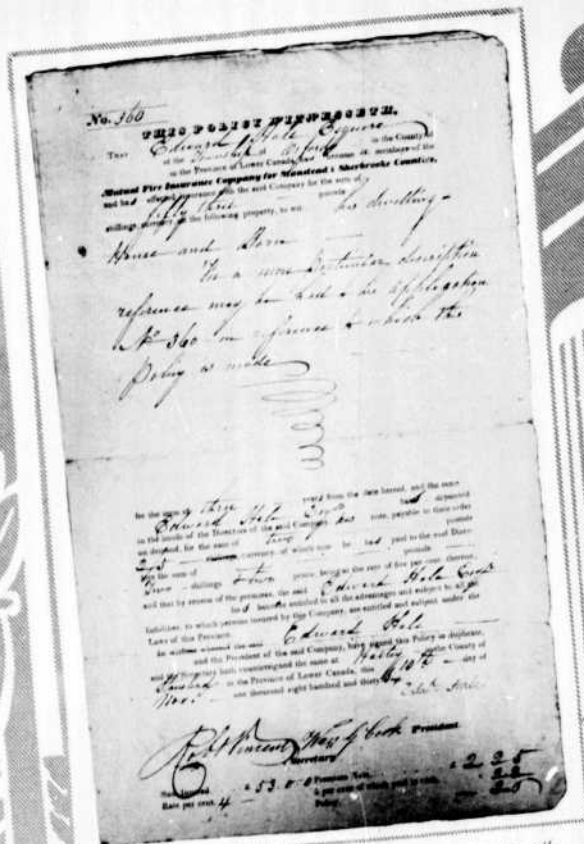 No. 360
THIS POLICY WITNESSETH,
That Edward Hale Esquire
of the Township of Orford in the County of
in the Province of Lower Canada, has become a member of the
Mutual Fire Insurance Company for Stanstead & Sherbrooke Counties,
and has effected insurance with the said Company for the sum of
fifty three pounds
shillings currency, on the following property, to wit: his dwelling
House and Barn
reference may be had to the application
No 360 on reference to which the
Policy is made
for the term of three years from the date hereof, and the same
Edward Hale Esqre has deposited
in the hands of the Directors of the said Company his note, payable to their order
on demand, for the sum of two pounds
currency, of which sum he has paid to the said Directors
the sum of pounds
two shillings & two pence, being at the rate of five per cent. thereon,
and that by reason of the premises, the said Edward Hale Esqre
has become entitled to all the advantages and subject to all the
liabilities, to which persons insured by this Company, are entitled and subject under the
Laws of this Province.
In witness whereof the said Edward Hale
and the President of the said Company, have signed this Policy in duplicate,
and the Secretary hath countersigned the same at Hatley in the County of
Stanstead in the Province of Lower Canada, this 10th day of
Novr. one thousand eight hundred and thirty
Edwd Hale
President
Robt Vincent Secretary
Sum Insured 53 0 0 Premium Note, 2 2 5
Rate per cent. 4 5 per cent of which paid in cash,
Policy,